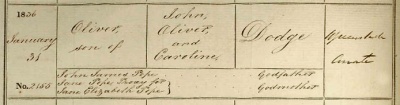 1836
January
31
No. 2155
Oliver,
son of
John
Oliver
and
Caroline
Dodge
John James Pope Godfather
Jane Pope Proxy for
Jane Elizabeth Pope Godmother
Curate